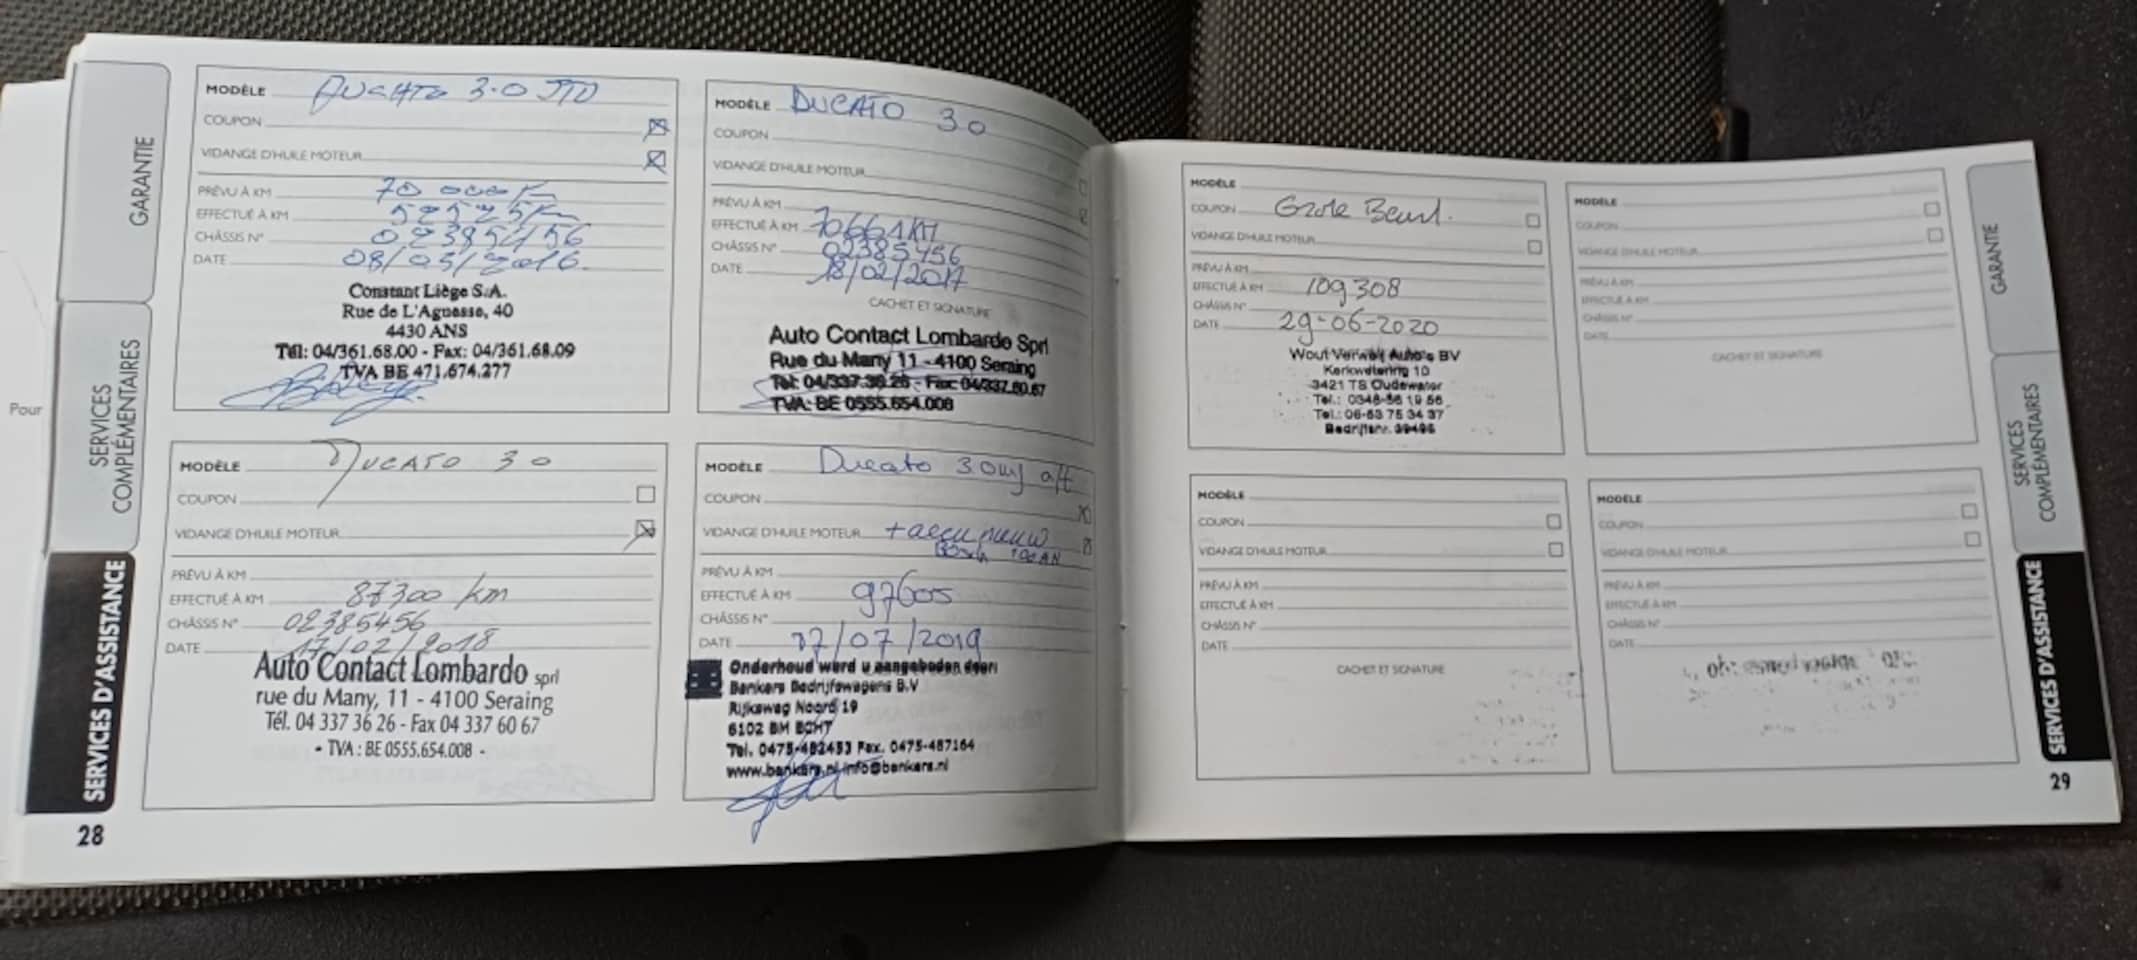 Pour
GARANTIE
SERVICES
COMPLÉMENTAIRES
SERVICES D'ASSISTANCE
28
MODÈLE DUCATO 3.0 JTD
COUPON
VIDANGE D'HUILE MOTEUR
PRÉVU À KM 70 000 Km
EFFECTUÉ À KM 52525 Km
CHÂSSIS N° 02385456
DATE 08/05/2016.
Constant Liège S.A.
Rue de L'Agnesse, 40
4430 ANS
Tél: 04/361.68.00 - Fax: 04/361.68.09
TVA BE 471.674.277
MODÈLE DUCATO 30
COUPON
VIDANGE D'HUILE MOTEUR
PRÉVU À KM
EFFECTUÉ À KM 70661 KM
CHÂSSIS N° 02385456
DATE 18/02/2017
CACHET ET SIGNATURE
Auto Contact Lombardo Sprl
Rue du Many 11 - 4100 Seraing
Tel: 04/337.36.26 - Fax: 04/337.60.67
TVA: BE 0555.654.008
MODÈLE DUCATO 30
COUPON
VIDANGE D'HUILE MOTEUR
PRÉVU À KM
EFFECTUÉ À KM 87300 km
CHÂSSIS N° 02385456
DATE 17/02/2018
Auto Contact Lombardo sprl
rue du Many, 11 - 4100 Seraing
Tél. 04 337 36 26 - Fax 04 337 60 67
- TVA : BE 0555.654.008 -
MODÈLE Ducato 30
COUPON
VIDANGE D'HUILE MOTEUR + accu nieuw
Bosch
PRÉVU À KM
EFFECTUÉ À KM 97605
CHÂSSIS N°
DATE 17/07/2019
Onderhoud werd u aangeboden door:
Benkers Bedrijfswagens B.V
Rijksweg Noord 19
6102 BM ECHT
Tel. 0475-482453 Fax. 0475-487164
www.benkers.nl info@benkers.nl
MODÈLE
COUPON Grote Beurt.
VIDANGE D'HUILE MOTEUR
PRÉVU À KM
EFFECTUÉ À KM 109308
CHÂSSIS N°
DATE 29-06-2020
Wout Verweij Auto's BV
Kerkwetering 10
3421 TS Oudewater
Tel.: 0348-56 19 56
Tel.: 06-53 75 34 37
Bedrijfsnr. 39495
MODÈLE
COUPON
VIDANGE D'HUILE MOTEUR
PRÉVU À KM
EFFECTUÉ À KM
CHÂSSIS N°
DATE
CACHET ET SIGNATURE
MODÈLE
COUPON
VIDANGE D'HUILE MOTEUR
PRÉVU À KM
EFFECTUÉ À KM
CHÂSSIS N°
DATE
CACHET ET SIGNATURE
MODÈLE
COUPON
VIDANGE D'HUILE MOTEUR
PRÉVU À KM
EFFECTUÉ À KM
CHÂSSIS N°
DATE
GARANTIE
SERVICES
COMPLÉMENTAIRES
SERVICES D'ASSISTANCE
29